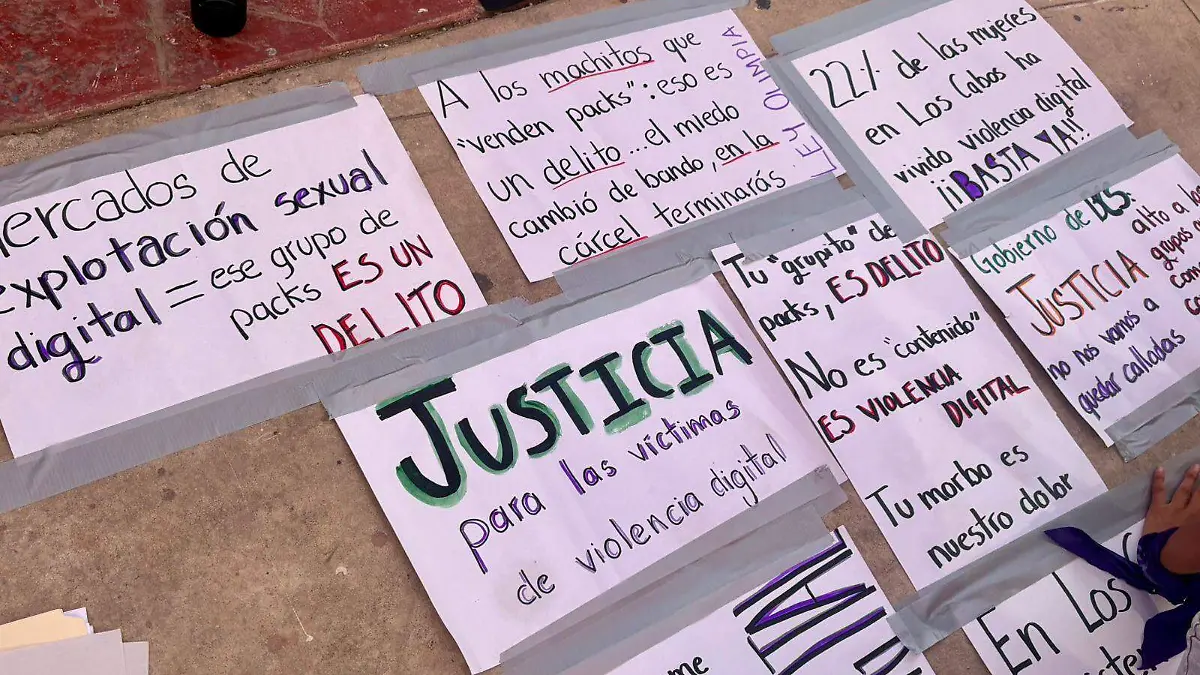 Mercados de
explotación sexual
digital = ese grupo de
packs ES UN
DELITO
A los machitos que
"venden packs": eso es
un delito... el miedo
cambió de bando, en la
cárcel terminarás
LEY OLIMPIA
22% de las mujeres
en Los Cabos ha
vivido violencia digital
¡¡BASTA YA!!
JUSTICIA
para las víctimas
de violencia digital
Tu "grupito" de
packs, ES DELITO
No es "contenido"
ES VIOLENCIA
DIGITAL
Tu morbo es
nuestro dolor
Gobierno de BCS:
JUSTICIA alto a los
grupos
no nos vamos a
quedar calladas
me
En Los